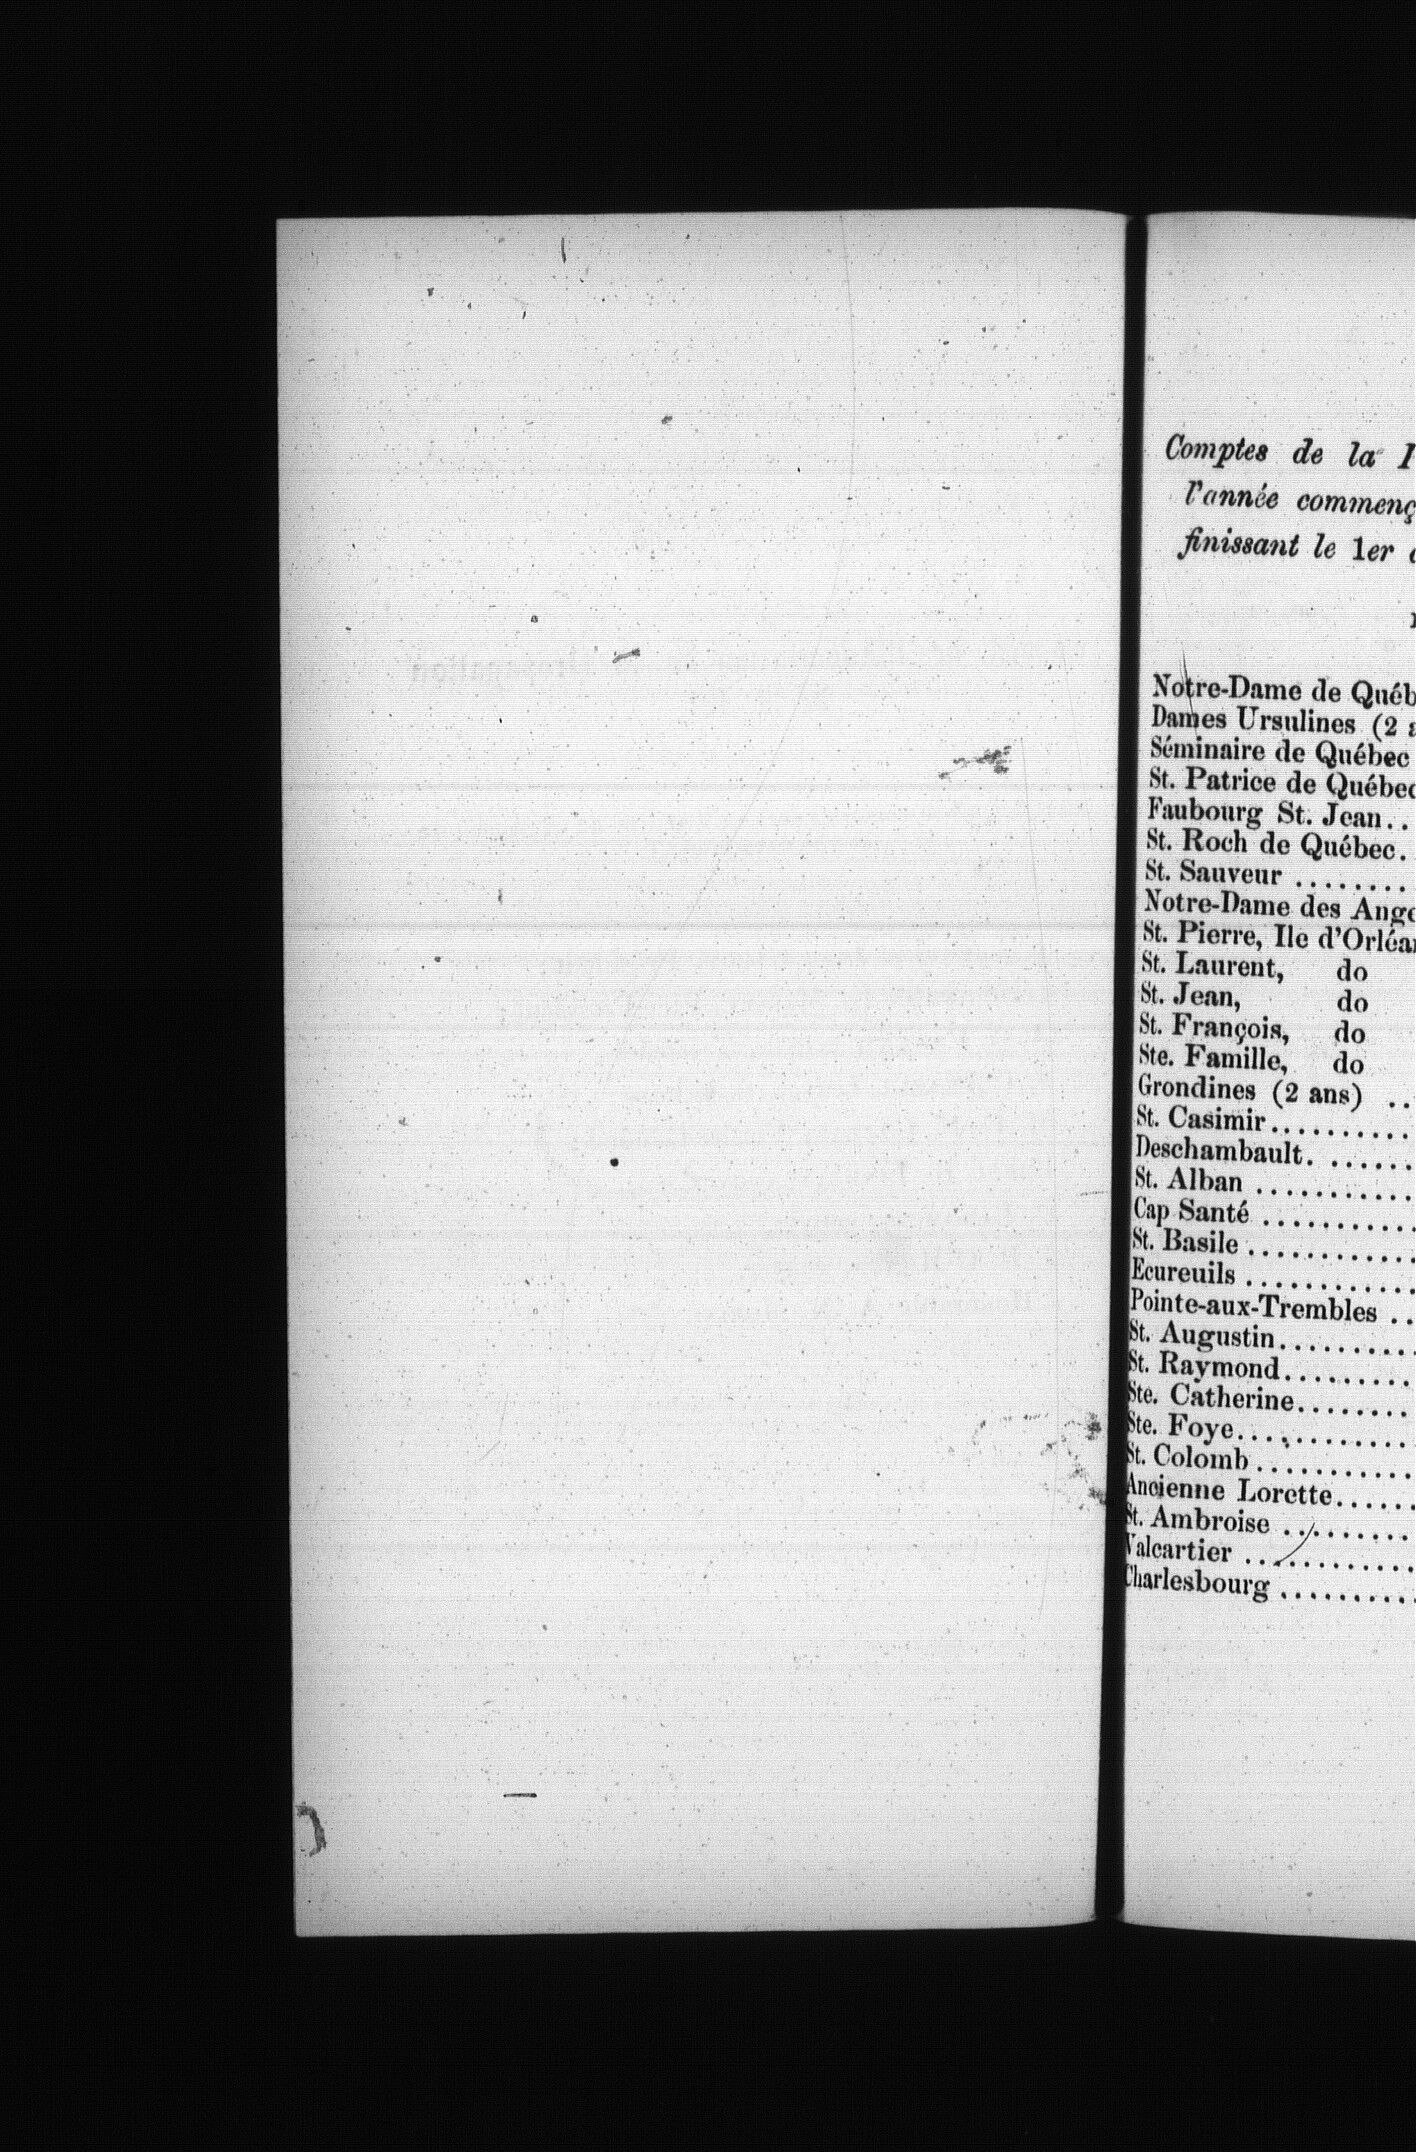 Comptes de la
l'année commenç
finissant le 1er
Notre-Dame de Québ
Dames Ursulines (2
Séminaire de Québec
St. Patrice de Québec
Faubourg St. Jean..
St. Roch de Québec.
St. Sauveur ........
Notre-Dame des Ange
St. Pierre, Ile d'Orléan
St. Laurent, do
St. Jean, do
St. François, do
Ste. Famille, do
Grondines (2 ans) ..
St. Casimir..........
Deschambault. ......
St. Alban ...........
Cap Santé ...........
St. Basile ...........
Ecureuils ............
Pointe-aux-Trembles ..
St. Augustin.........
St. Raymond.........
Ste. Catherine........
Ste. Foye............
St. Colomb ...........
Ancienne Lorette......
St. Ambroise .........
Valcartier ............
Charlesbourg ..........